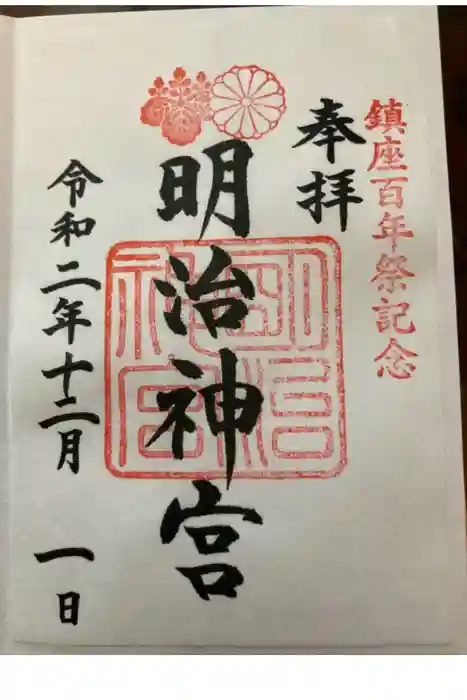 鎮座百年祭記念
奉拝
明治神宮
明治神宮
令和二年十二月一日